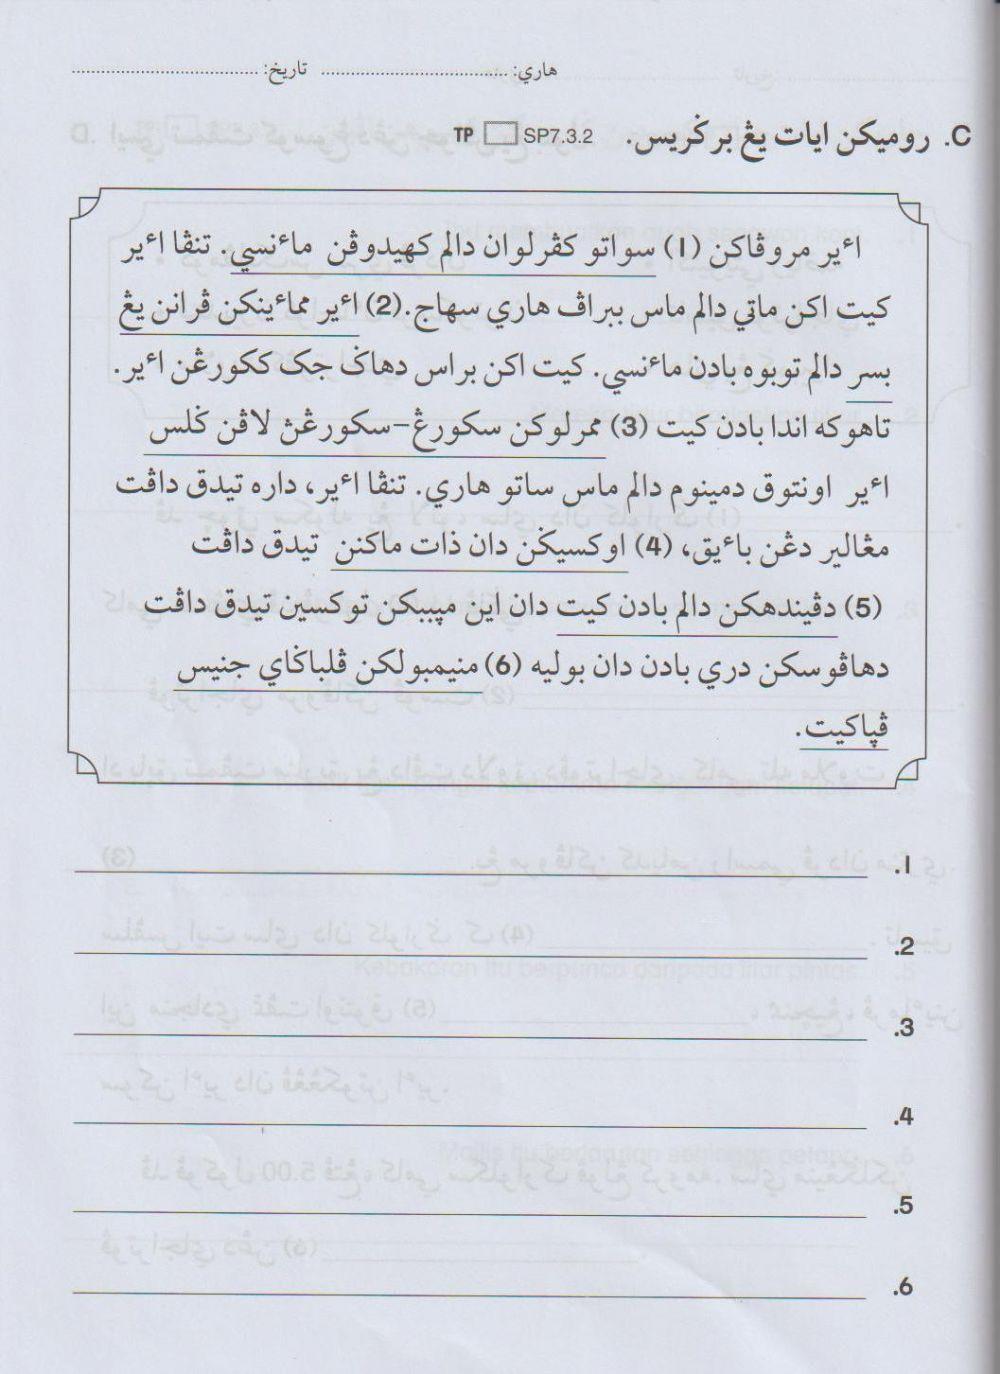 هاري: ........................ تاريخ: ........................
C. روميکن ايات يڠ برڬريس. SP7.3.2 TP
اءير مروڤاکن (1) سواتو کڤرلوان دالم کهيدوڤن ماءنسي. تنڤا اءير
کيت اکن ماتي دالم ماس ببراڤ هاري سهاج. (2) اءير مماءينکن ڤرانن يڠ
بسر دالم توبوه بادن ماءنسي. کيت اکن براس دهاݢ جک ککورڠن اءير.
تاهوکه اندا بادن کيت (3) ممرلوکن سکورڠ-سکورڠڽ لاڤن ݢلس
اءير اونتوق دمينوم دالم ماس ساتو هاري. تنڤا اءير، داره تيدق داڤت
مڠالير دڠن باءيق، (4) اوکسيݢن دان ذات ماکنن تيدق داڤت
(5) دڤيندهکن دالم بادن کيت دان اين مڽببکن توکسين تيدق داڤت
دهاڤوسکن دري بادن دان بوليه (6) منيمبولکن ڤلباݢاي جنيس
ڤڽاکيت.
1.
2.
3.
4.
5.
6.